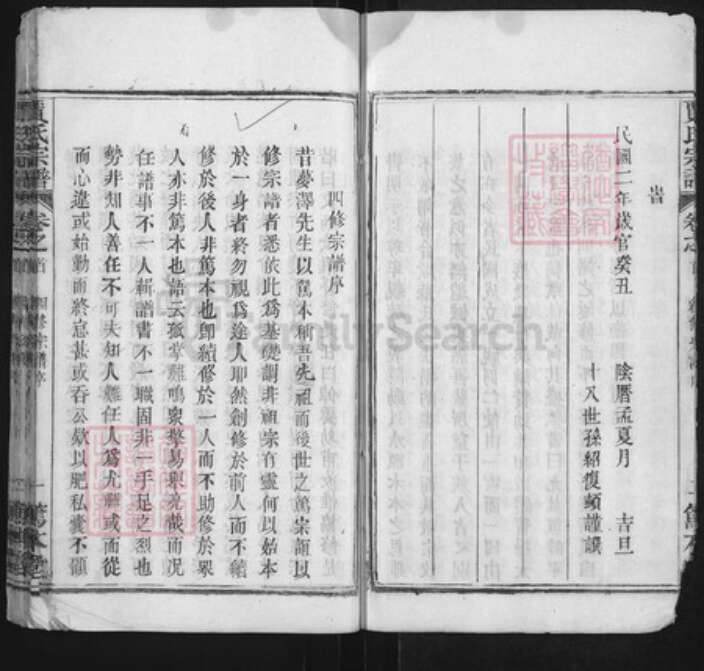 昔
民國二年歲官癸丑 陰曆孟夏月 吉旦
十八世孫紹復頓謹譔
四修宗譜序
昔夢澤先生以篤本稱吾先祖而後世之篤宗誼以
修宗譜者悉依此爲基礎謂非祖宗有靈何以始本
於一身者終勿視爲途人耶然創修於前人而不續
修於後人非篤本也卽續修於一人而不助修於眾
人亦非篤本也語云孤掌難鳴眾擎易舉充哉而况
任譜事不一人輯譜書不一職固非一手足之烈也
勢非知人善任不可夫知人難任人爲尤難或面從
而心違或始勤而終怠甚或吞公欵以肥私橐不顧
賈氏宗譜 卷之首 四修宗譜序 一 篤本堂
FamilySearch